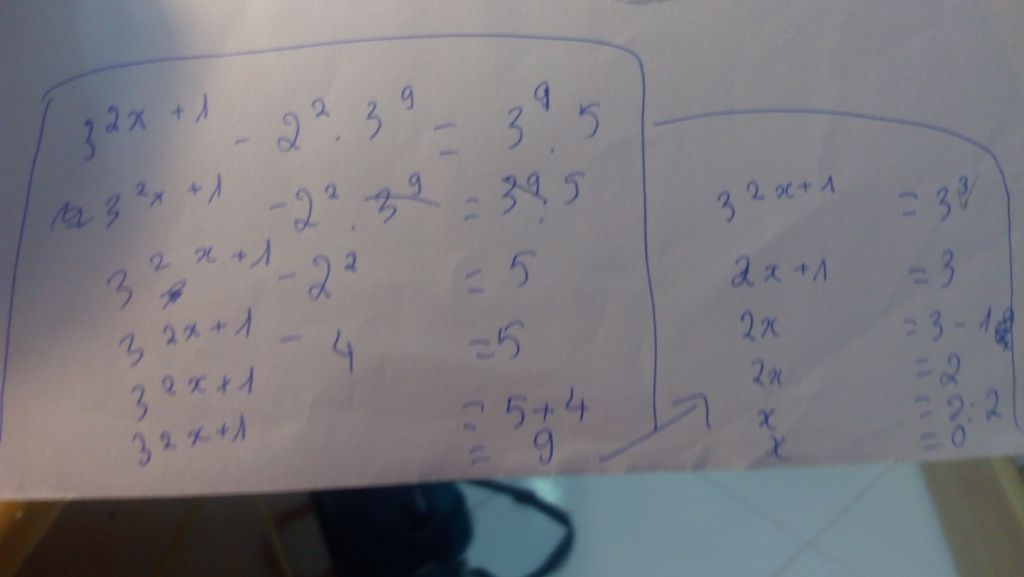 3^{2x+1} - 2^2 . 3^9 = 3^9 . 5
3^{2x+1} - 2^2 . 3^9 = 3^9 . 5
3^{2x+1} - 2^2 = 5
3^{2x+1} - 4 = 5
3^{2x+1} = 5+4
3^{2x+1} = 9
3^{2x+1} = 3^3
2x+1 = 3
2x = 3-1
2x = 2
x = 2:2
x = 0